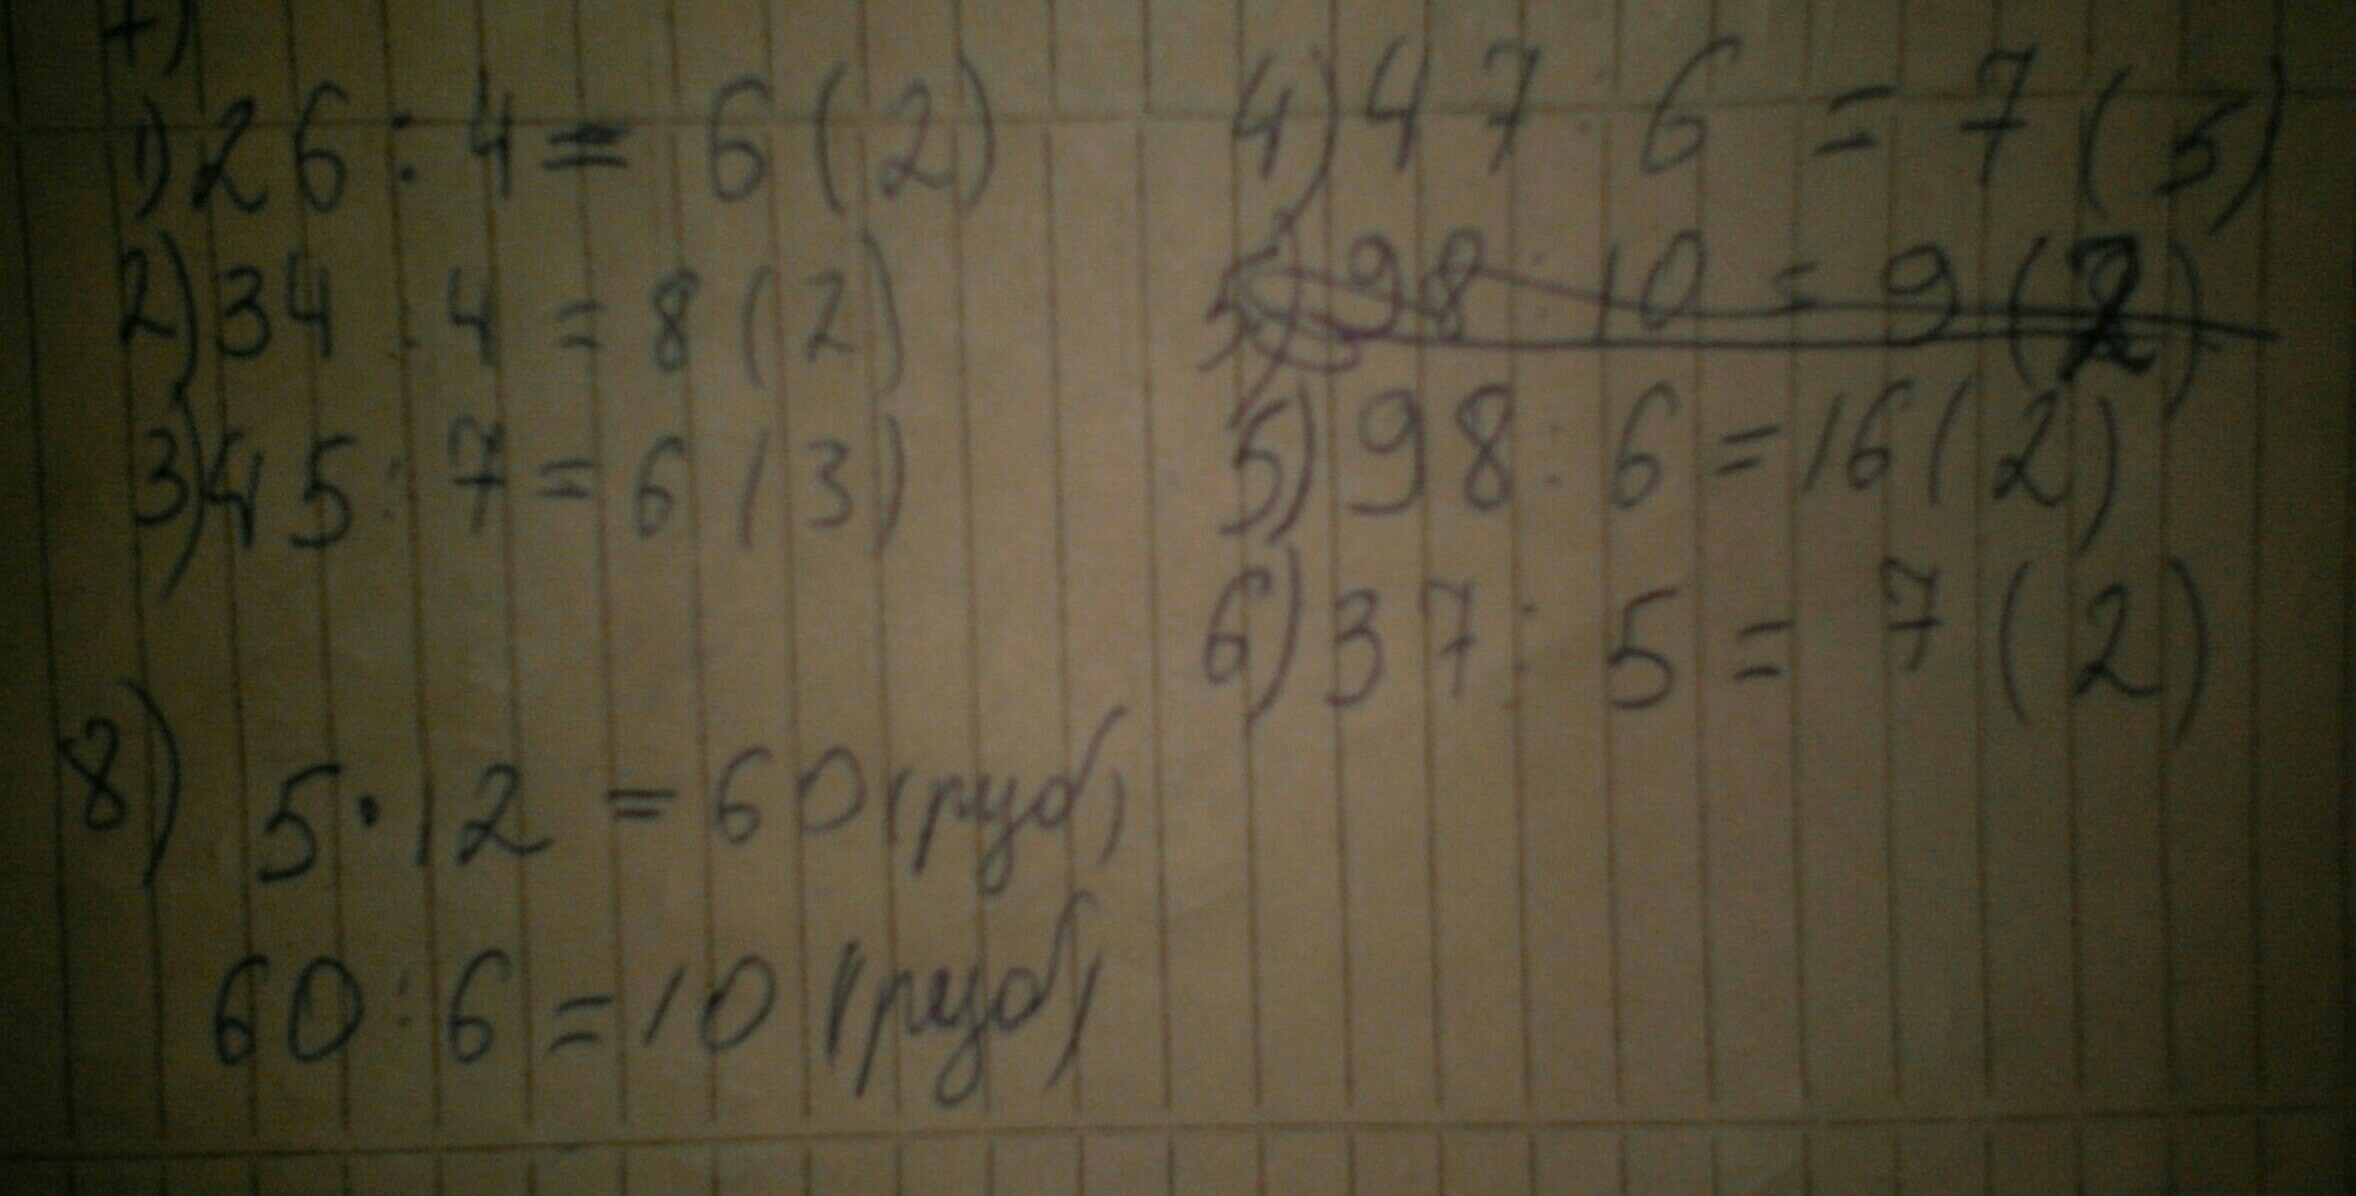 7)
1) 26 : 4 = 6 (2)
2) 34 : 4 = 8 (2)
3) 45 : 7 = 6 (3)
4) 47 : 6 = 7 (5)
5) 98 : 10 = 9 (
5) 98 : 6 = 16 (2)
6) 37 : 5 = 7 (2)
8) 5 · 12 = 60 (руб)
60 : 6 = 10 (руб)